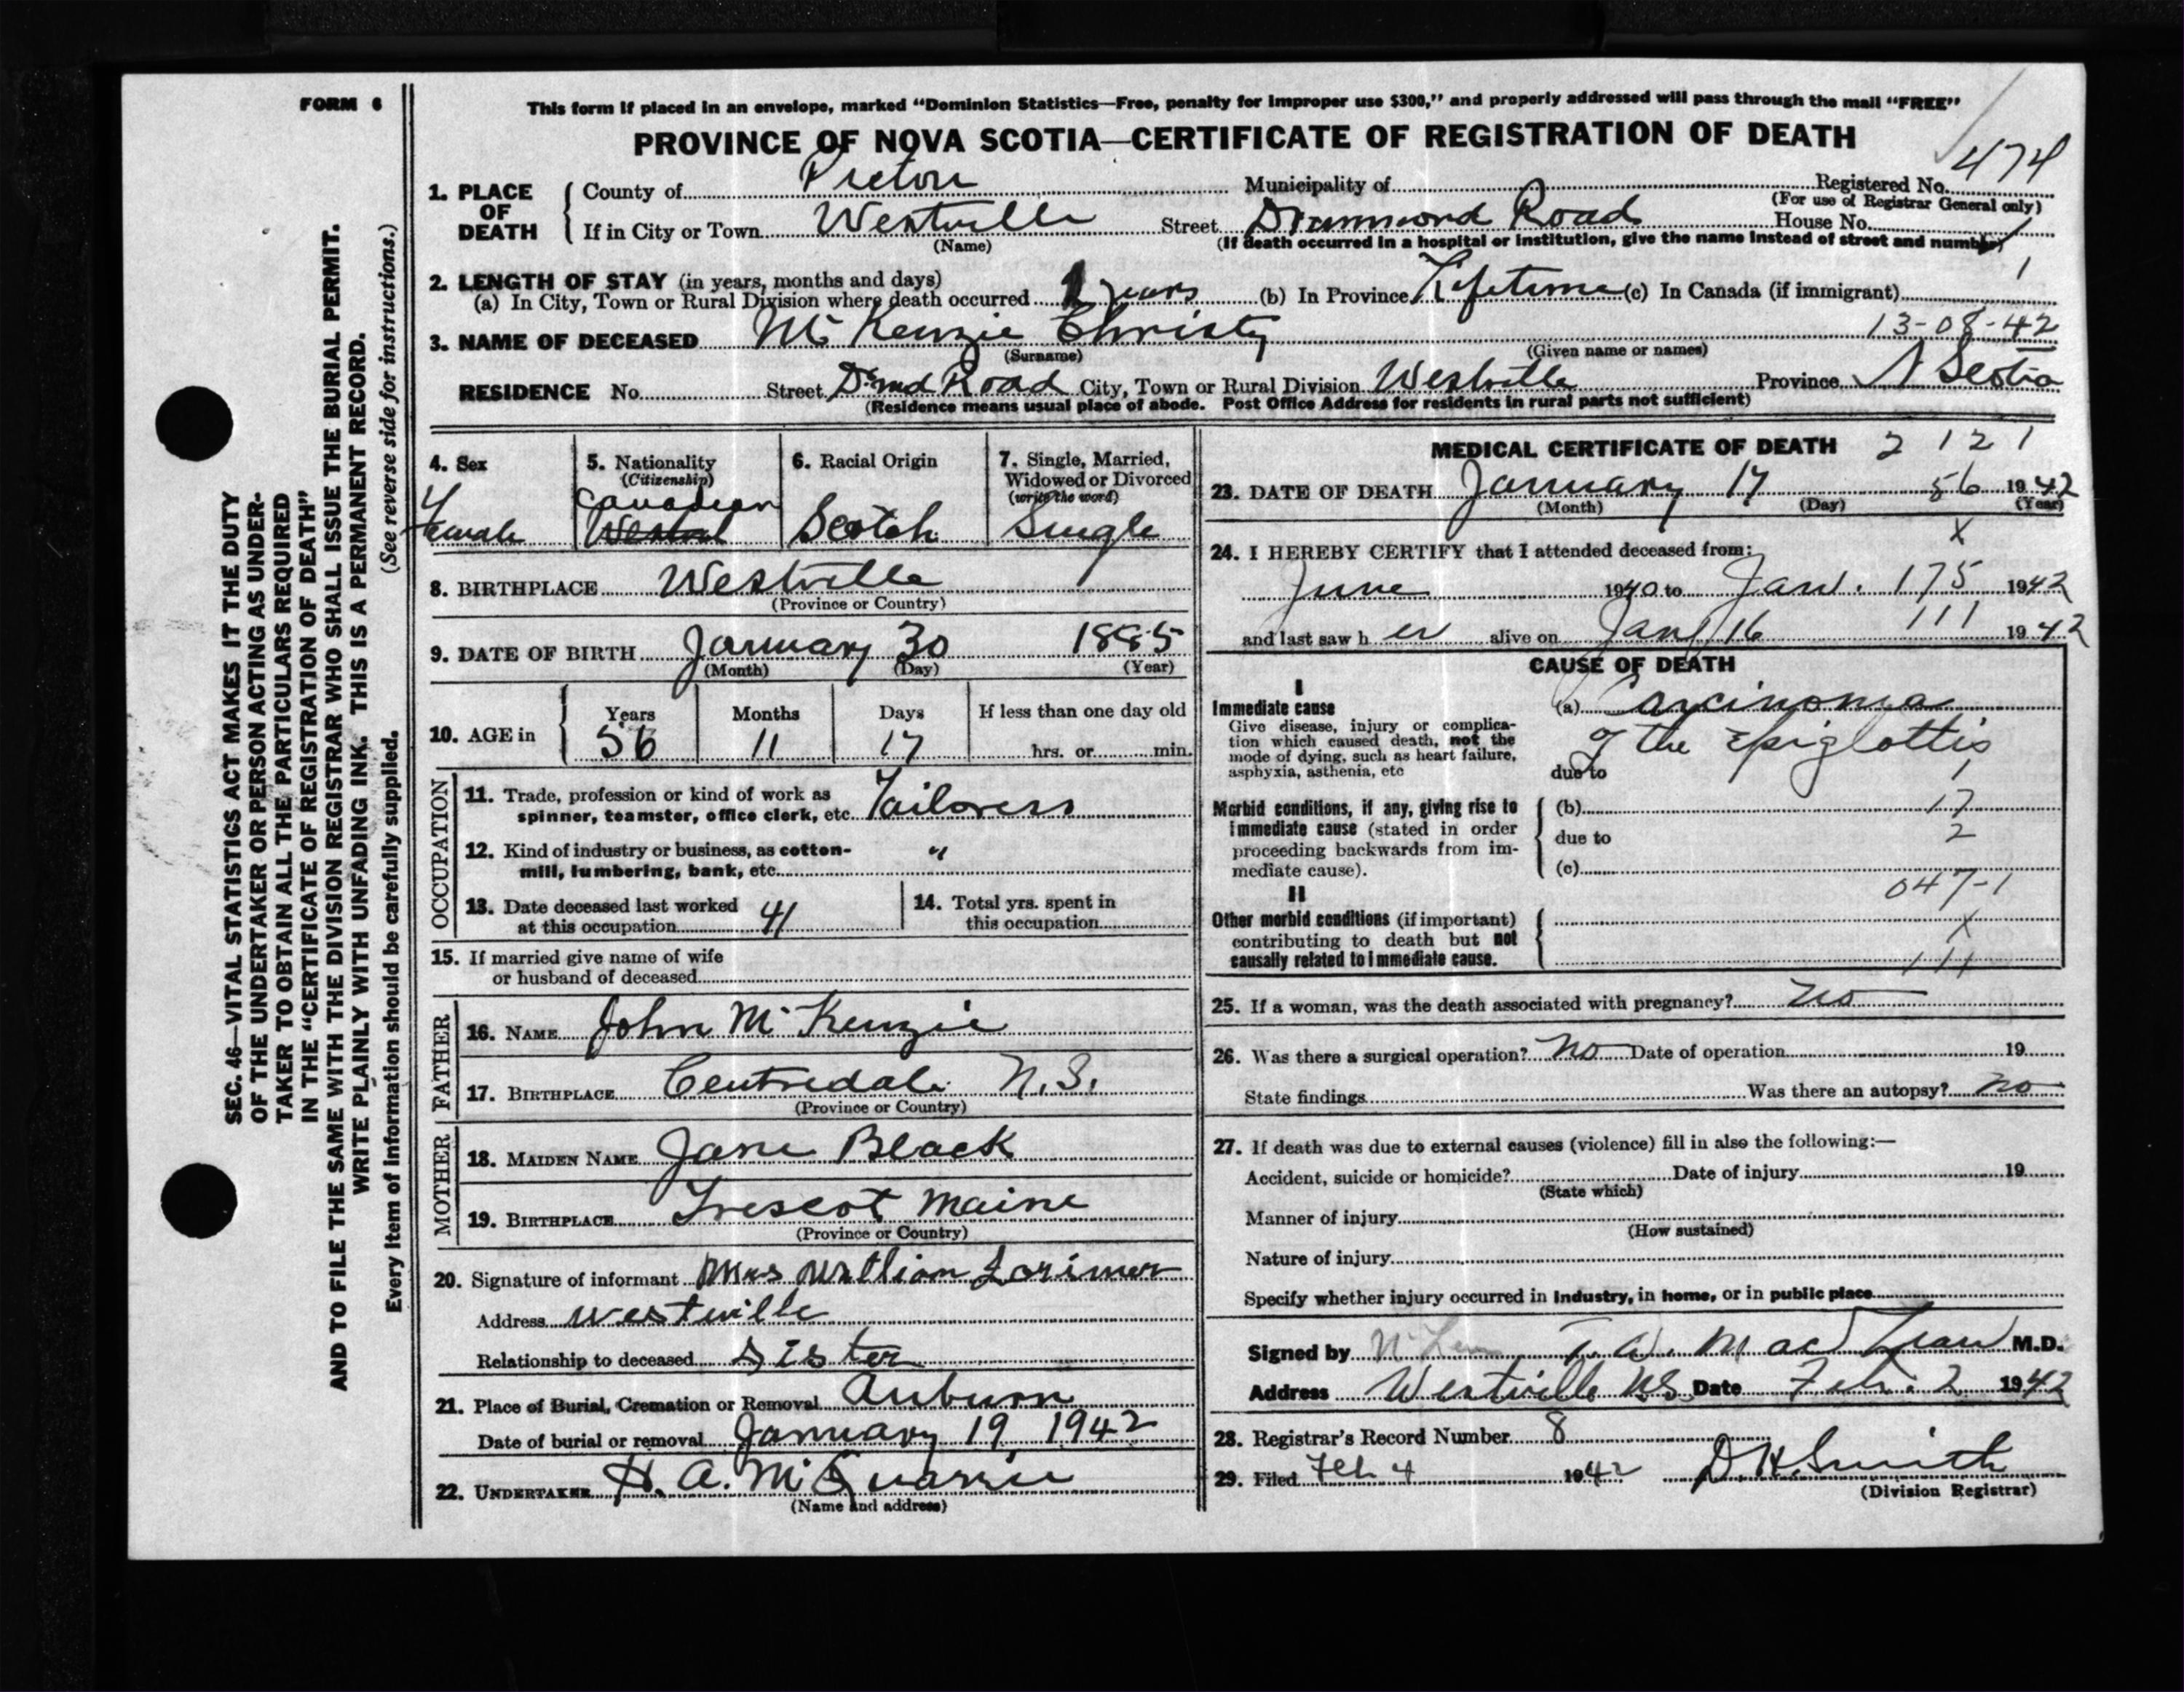 FORM 6
This form if placed in an envelope, marked “Dominion Statistics—Free, penalty for improper use $300,” and properly addressed will pass through the mail “FREE”
PROVINCE OF NOVA SCOTIA—CERTIFICATE OF REGISTRATION OF DEATH
474
1. PLACE OF DEATH
County of Pictou Municipality of Registered No.
(For use of Registrar General only)
If in City or Town Westville Street Drummond Road House No.
(Name) (If death occurred in a hospital or institution, give the name instead of street and number)
1
2. LENGTH OF STAY (in years, months and days)
(a) In City, Town or Rural Division where death occurred years (b) In Province Lifetime (c) In Canada (if immigrant)
13-08-42
3. NAME OF DECEASED McKenzie Christy
(Surname) (Given name or names)
RESIDENCE No. Street Dr'md Road City, Town or Rural Division Westville Province N Scotia
(Residence means usual place of abode. Post Office Address for residents in rural parts not sufficient)
4. Sex
Female
5. Nationality
(Citizenship)
Canadian
6. Racial Origin
Scotch
7. Single, Married, Widowed or Divorced
(write the word)
Single
8. BIRTHPLACE Westville
(Province or Country)
9. DATE OF BIRTH January 30 1885
(Month) (Day) (Year)
10. AGE in
Years Months Days If less than one day old
56 11 17 hrs. or min.
OCCUPATION
11. Trade, profession or kind of work as
spinner, teamster, office clerk, etc. Tailoress
12. Kind of industry or business, as cotton-
mill, lumbering, bank, etc. "
13. Date deceased last worked
at this occupation 41
14. Total yrs. spent in
this occupation
15. If married give name of wife
or husband of deceased
FATHER
16. NAME John McKenzie
17. BIRTHPLACE Centredale N.S.
(Province or Country)
MOTHER
18. MAIDEN NAME Jane Black
19. BIRTHPLACE Trescot Maine
(Province or Country)
20. Signature of informant Mrs William Lorimer
Address Westville
Relationship to deceased Sister
21. Place of Burial, Cremation or Removal Auburn
Date of burial or removal January 19 1942
22. UNDERTAKER H. A. McQuarrie
(Name and address)
MEDICAL CERTIFICATE OF DEATH 2 1 2 1
23. DATE OF DEATH January 17 56 1942
(Month) (Day) (Year)
X
24. I HEREBY CERTIFY that I attended deceased from:
June 1940 to Jan. 175 1942
111
and last saw h er alive on Jan 16 1942
CAUSE OF DEATH
I
Immediate cause
Give disease, injury or complica-
tion which caused death, not the
mode of dying, such as heart failure,
asphyxia, asthenia, etc
(a) Carcinoma
of the Epiglottis
due to 1
Morbid conditions, if any, giving rise to
immediate cause (stated in order
proceeding backwards from im-
mediate cause).
(b) 17
due to 2
(c)
047-1
II
Other morbid conditions (if important)
contributing to death but not
causally related to immediate cause.
X
111
25. If a woman, was the death associated with pregnancy? no
26. Was there a surgical operation? No Date of operation 19
State findings Was there an autopsy? no
27. If death was due to external causes (violence) fill in also the following:—
Accident, suicide or homicide? Date of injury 19
(State which)
Manner of injury
(How sustained)
Nature of injury
Specify whether injury occurred in industry, in home, or in public place
Signed by T. W. MacLean M.D.
Address Westville NS Date Feb. 2 1942
28. Registrar's Record Number 8
29. Filed Feb 4 1942 D.H. Smith
(Division Registrar)
SEC. 46—VITAL STATISTICS ACT MAKES IT THE DUTY
OF THE UNDERTAKER OR PERSON ACTING AS UNDER-
TAKER TO OBTAIN ALL THE PARTICULARS REQUIRED
IN THE “CERTIFICATE OF REGISTRATION OF DEATH”
AND TO FILE THE SAME WITH THE DIVISION REGISTRAR WHO SHALL ISSUE THE BURIAL PERMIT.
WRITE PLAINLY WITH UNFADING INK. THIS IS A PERMANENT RECORD.
Every item of information should be carefully supplied. (See reverse side for instructions.)